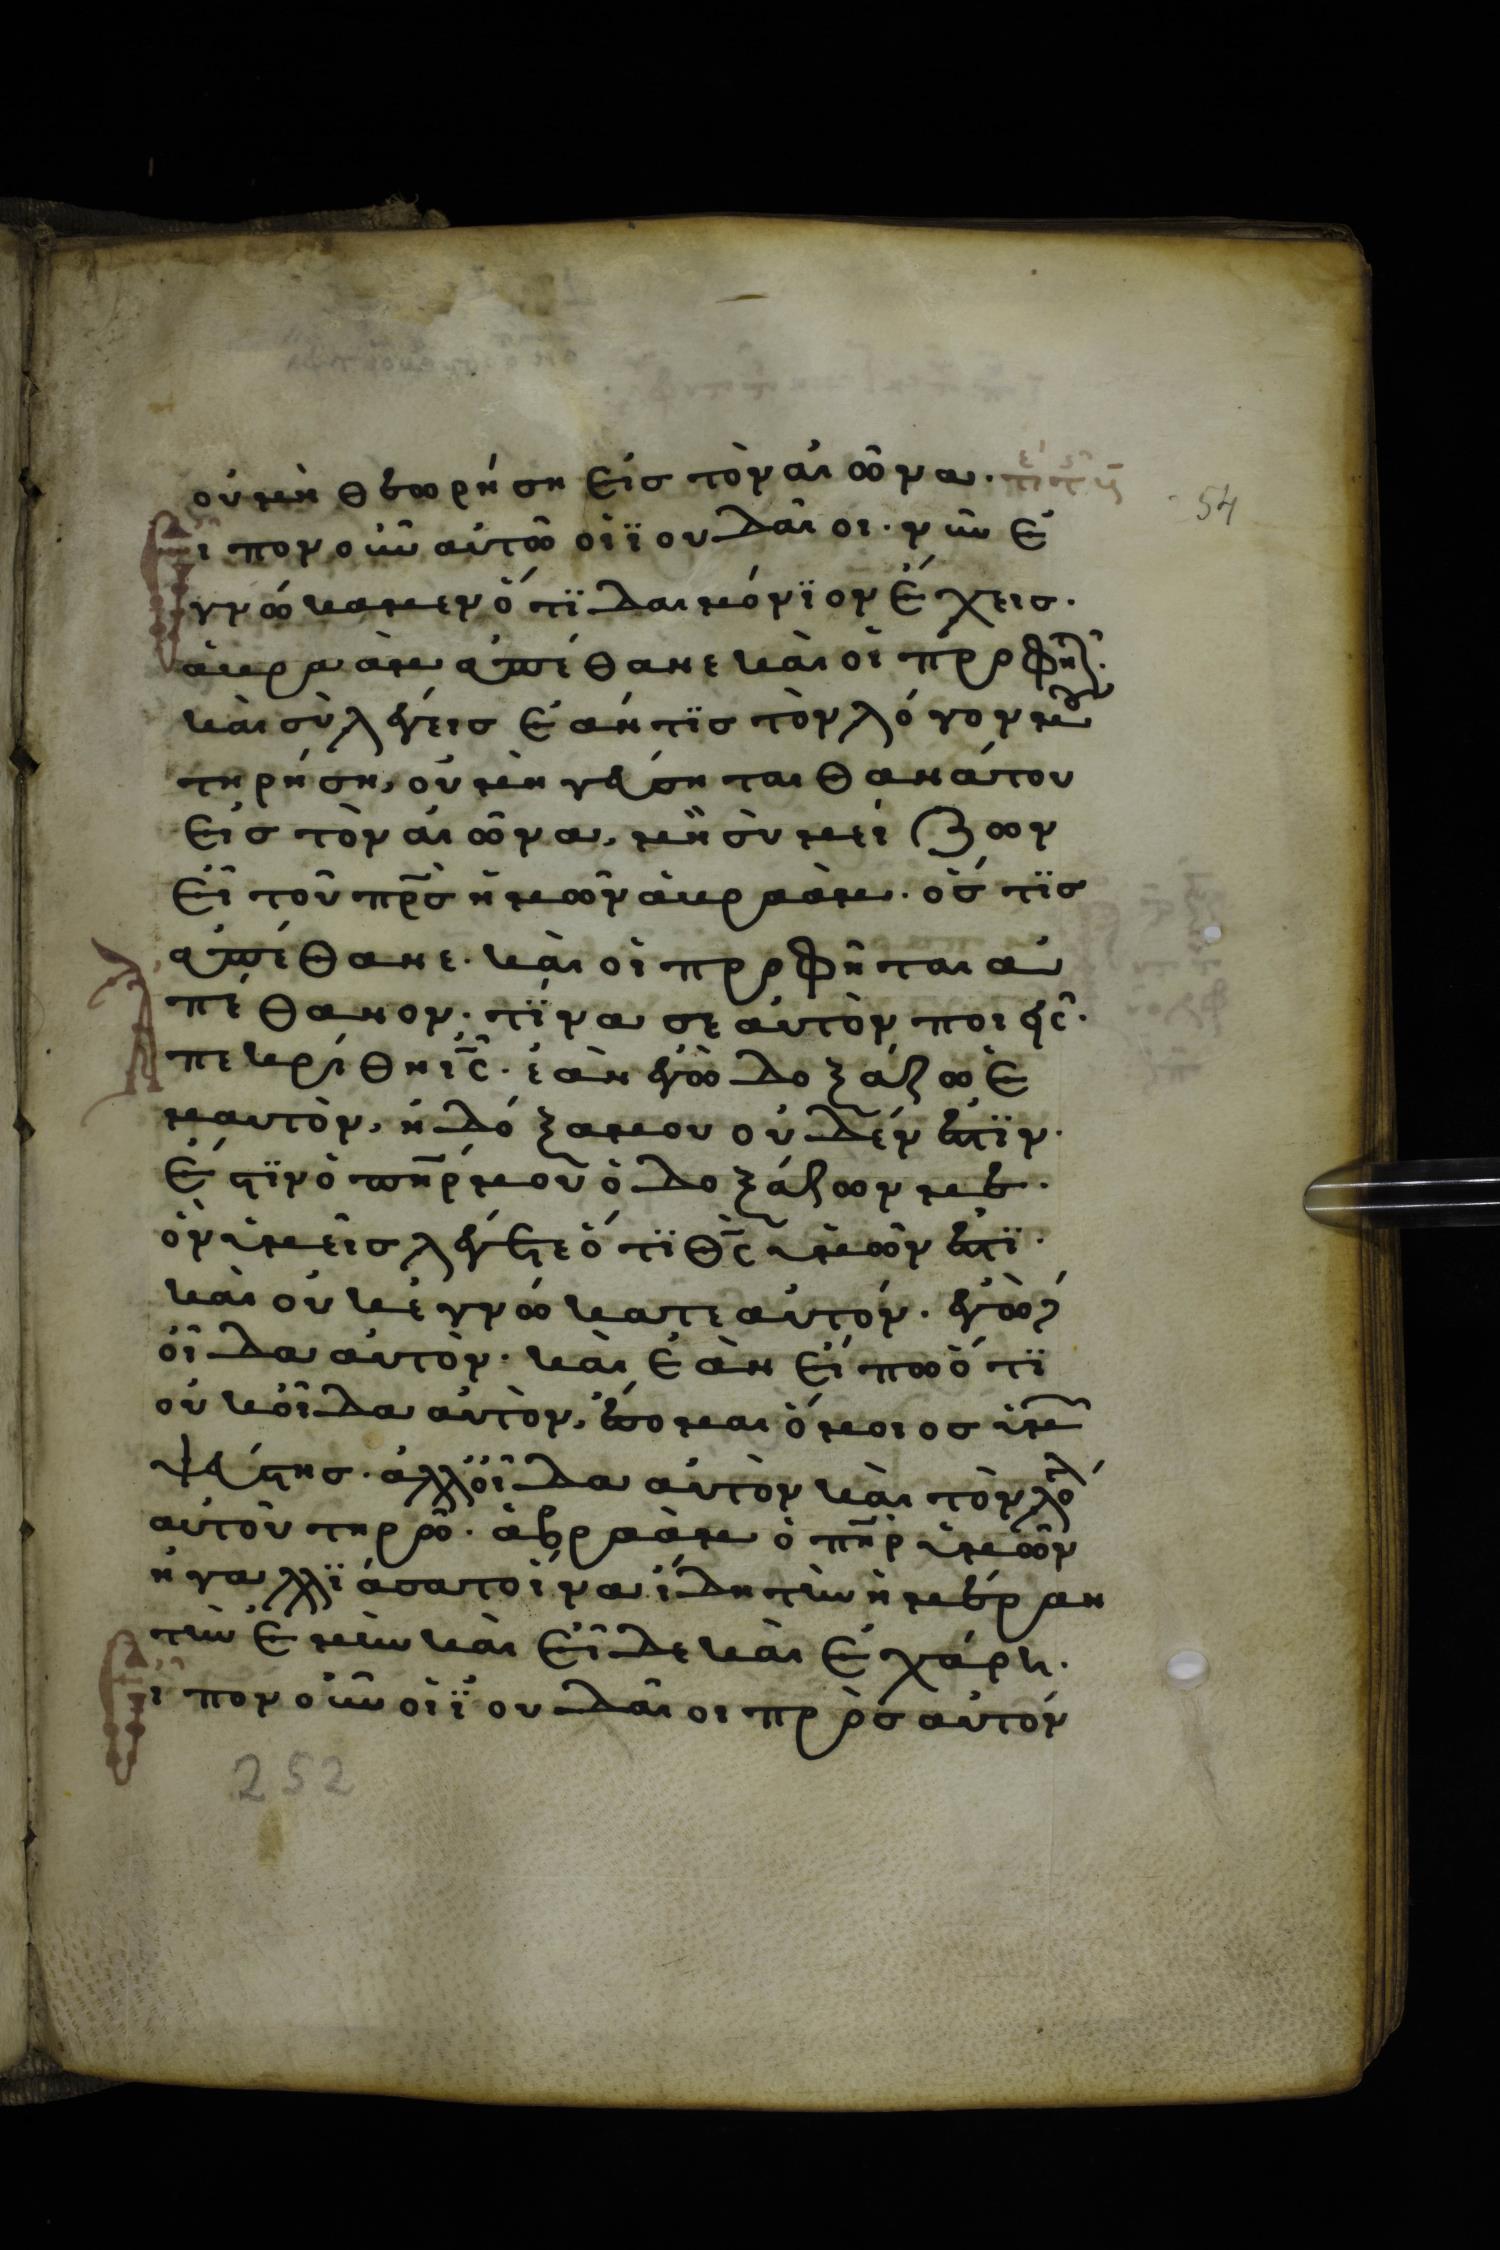 οὐ μὴ θεωρήση εἰς τὸν αἰῶνα.
εἶπον οὖν αὐτῶ οἱ ϊουδαῖοι. νῦν ἐ
γνώκαμεν ὅτϊ δαιμόνϊον ἔχεις.
ἀβραὰμ ἀπέθανε καὶ οἱ προφῆτ.
καὶ σὺ λέγεις ἐάν τϊς τὸν λόγον μου
τηρήση, οὐ μὴ γεύσηται θανάτου
εἰς τὸν αἰῶνα, μὴ σὺ μείζων
εἶ τοῦ πρ̅ς ἡμῶν ἀβραὰμ. ὅς τϊς
ἀπέθανε. καὶ οἱ προφῆται ἀ
πέθανον. τίνα σεαυτὸν ποιεῖς.
Ἀπεκρίθη ι̅ς. ἐὰν ἐγὼ δοξάζω ἐ
μαυτὸν, ἡ δόξα μου οὐδέν ἐστϊν.
ἔστϊν ὁ πη̅ρ μοῦ ὁ δοξάζων με.
ὃν ὑμεῖς λέγετε ὅτϊ θ̅ς ὑμῶν ἐστϊ.
καὶ οὐκ ἐγνώκατε αὐτόν. ἐγὼ δὲ
οἶδα αὐτὸν. καὶ ἐὰν εἴπω ὅτϊ
οὐκ οἶδα αὐτὸν, ἔσομαι ὅμοιος ὑμῶν
ψεύστης. ἀλλ' οἶδα αὐτὸν καὶ τὸν λό
αὐτοῦ τηρῶ. ἀβραὰμ ὁ πη̅ρ ὑμῶν
ἠγαλλϊάσατο ἵνα ἴδη τὴν ἡμέραν
τὴν ἐμὴν καὶ εἶδε καὶ ἐχάρη.
εἶπον οὖν οἱ ϊουδαῖοι πρὸς αὐτόν
54
252